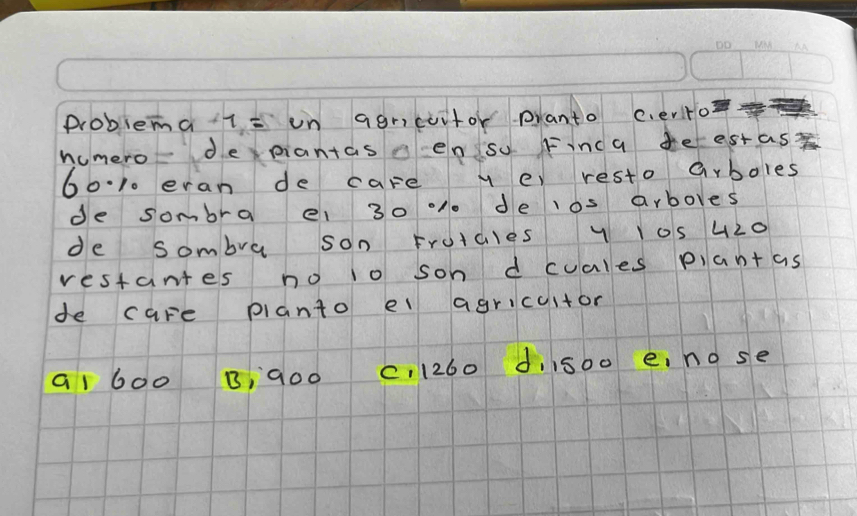 DD MM AA
Problema 1 = un agricultor planto cierto
numero de plantas en su Finca de estas
60% eran de cafe y el resto arboles
de sombra el 30 % de los arboles
de sombra son frutales y los 420
restantes no lo son d cuales plantas
de cafe planto el agricultor
a, 600 B, 900 c, 1260 d, 1500 e, no se